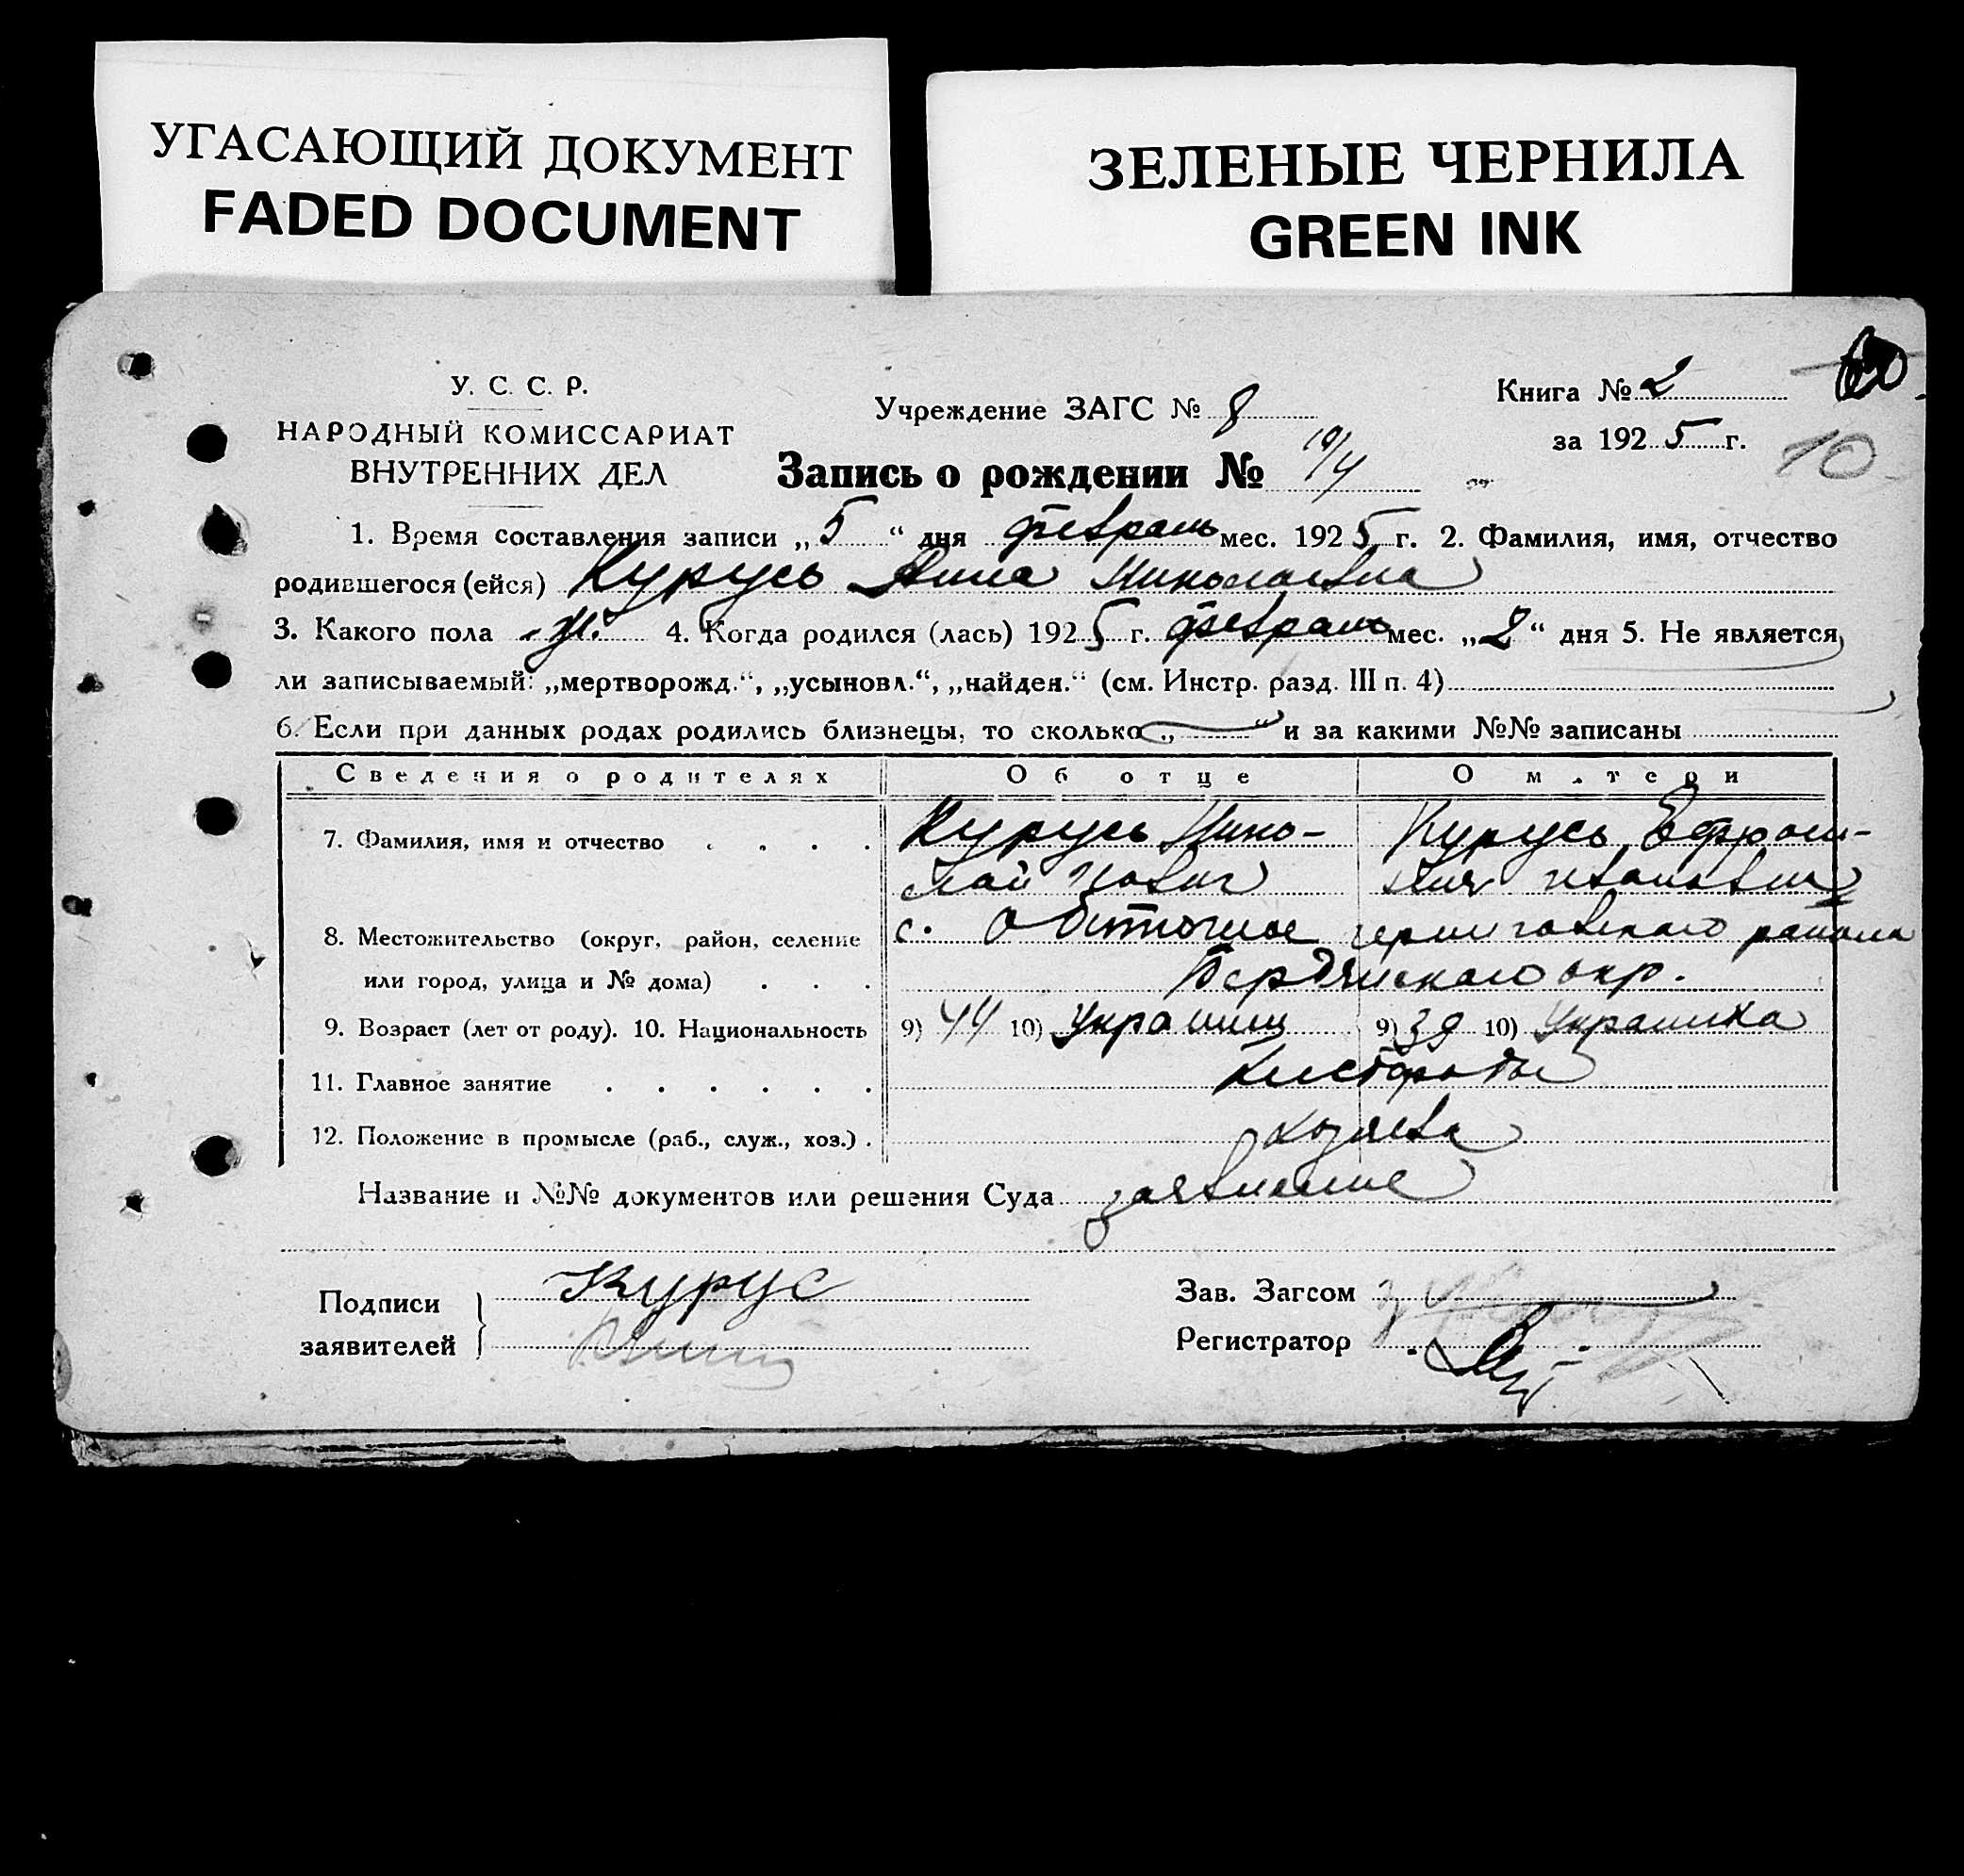 УГАСАЮЩИЙ ДОКУМЕНТ
FADED DOCUMENT
ЗЕЛЕНЫЕ ЧЕРНИЛА
GREEN INK
У. С. С. Р.
НАРОДНЫЙ КОМИССАРИАТ
ВНУТРЕННИХ ДЕЛ
Учреждение ЗАГС № 8
Книга № 2
за 1925 г.
10
Запись о рождении № 10/4
1. Время составления записи „5“ дня февраль мес. 1925 г. 2. Фамилия, имя, отчество
родившегося (ейся) Курусь Анна Николаевна
3. Какого пола ж. 4. Когда родился (лась) 1925 г. февраль мес. „2“ дня 5. Не является
ли записываемый: „мертворожд.“, „усыновл.“, „найден.“ (см. Инстр. разд. III п. 4)
6. Если при данных родах родились близнецы, то сколько „ “ и за какими №№ записаны
Сведения о родителях Об отце О матери
7. Фамилия, имя и отчество Курусь Нико- Курусь Ефрош-
лай
8. Местожительство (округ, район, селение с. Обиточное черниговского района
или город, улица и № дома) Бердянского окр.
9. Возраст (лет от роду). 10. Национальность 9) 44 10) Украинец 9) 39 10) Украинка
11. Главное занятие Хлебороды
12. Положение в промысле (раб., служ., хоз.) хозяева
Название и №№ документов или решения Суда заявление
Подписи заявителей Курус
Зав. Загсом
Регистратор